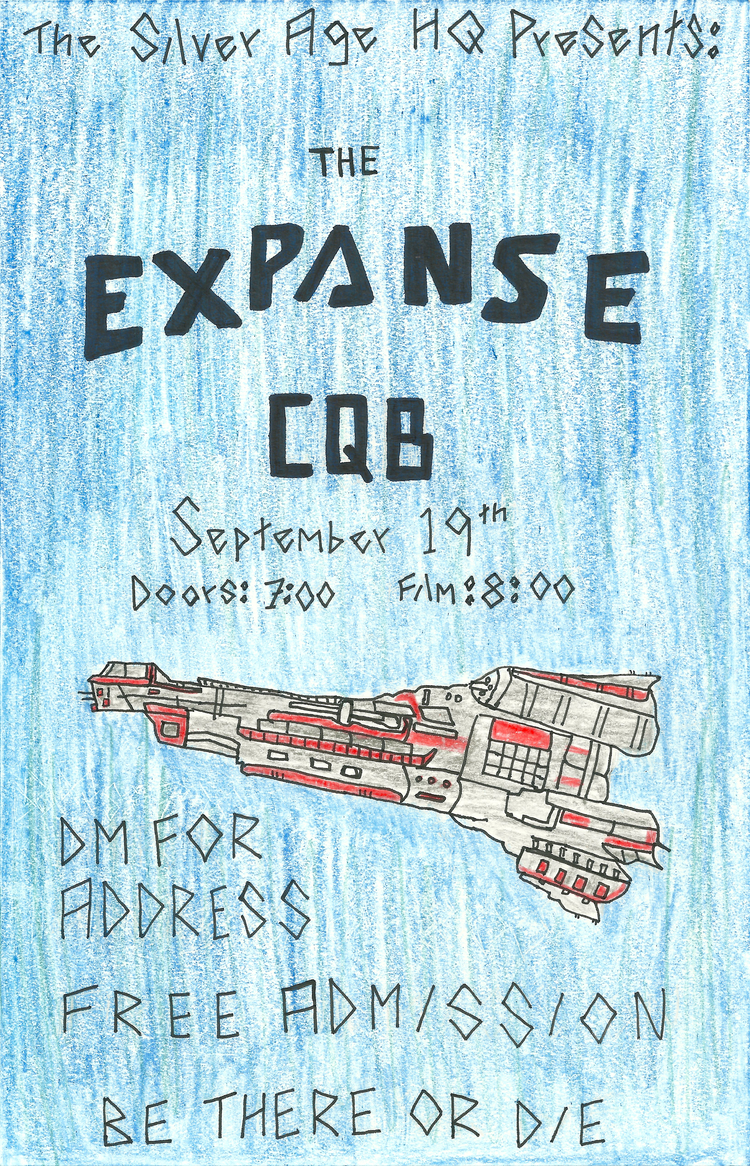 The Silver Age HQ Presents:
THE
EXPANSE
CQB
September 19th
Doors: 7:00 Film: 8:00
DM FOR
ADDRESS
FREE ADMISSION
BE THERE OR DIE